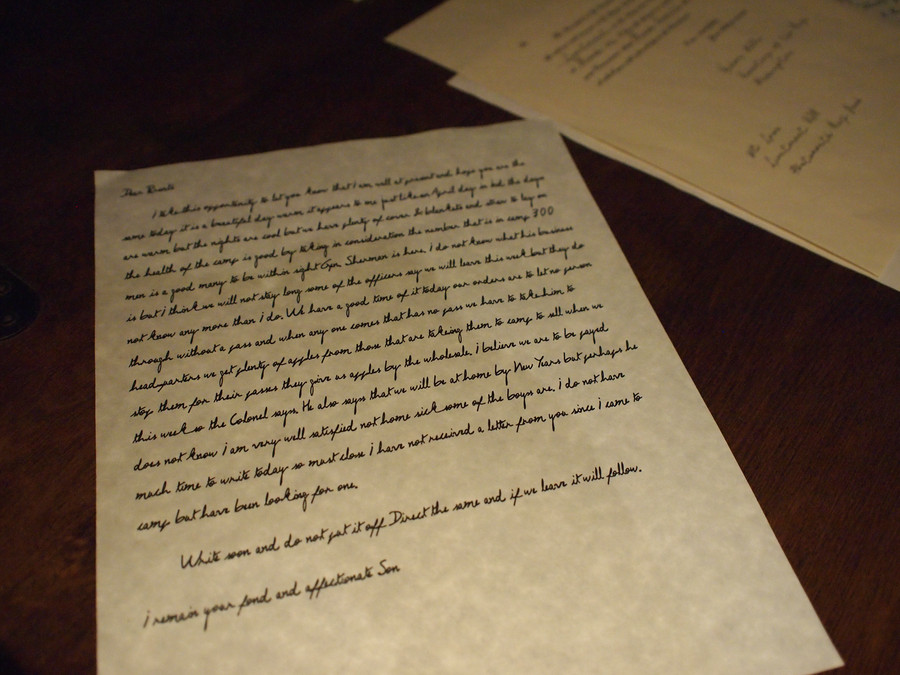 Dear Parents
I take this opportunity to let you know that I am well at present and hope you are the
same today it is a beautiful day warm it appears to me just like an April day in but the days
are warm but the nights are cool but we have plenty of cover to blankets and other to lay on
the health of the camp is good by taking in consideration the number that is in camp 300
men is a good many to be within sight Gen Shermen is here. i do not know what his business
is but i think we will not stay long some of the officers say we will leave this week but they do
not know any more than i do. We have a good time of it today our orders are to let no person
through without a pass and when any one comes that has no pass we have to take him to
headquarters we get plenty of apples from those that are taking them to camp to sell when we
stop them for their passes they give us apples by the wholesale. i believe we are to be payed
this week so the Colonel says. He also says that we will be at home by New Years but perhaps he
does not know i am very well satisfied not home sick some of the boys are. i do not have
much time to write today so must close i have not received a letter from you since i came to
camp but have been looking for one.
Write soon and do not put it off Direct the same and if we leave it will follow.
i remain your fond and affectionate Son